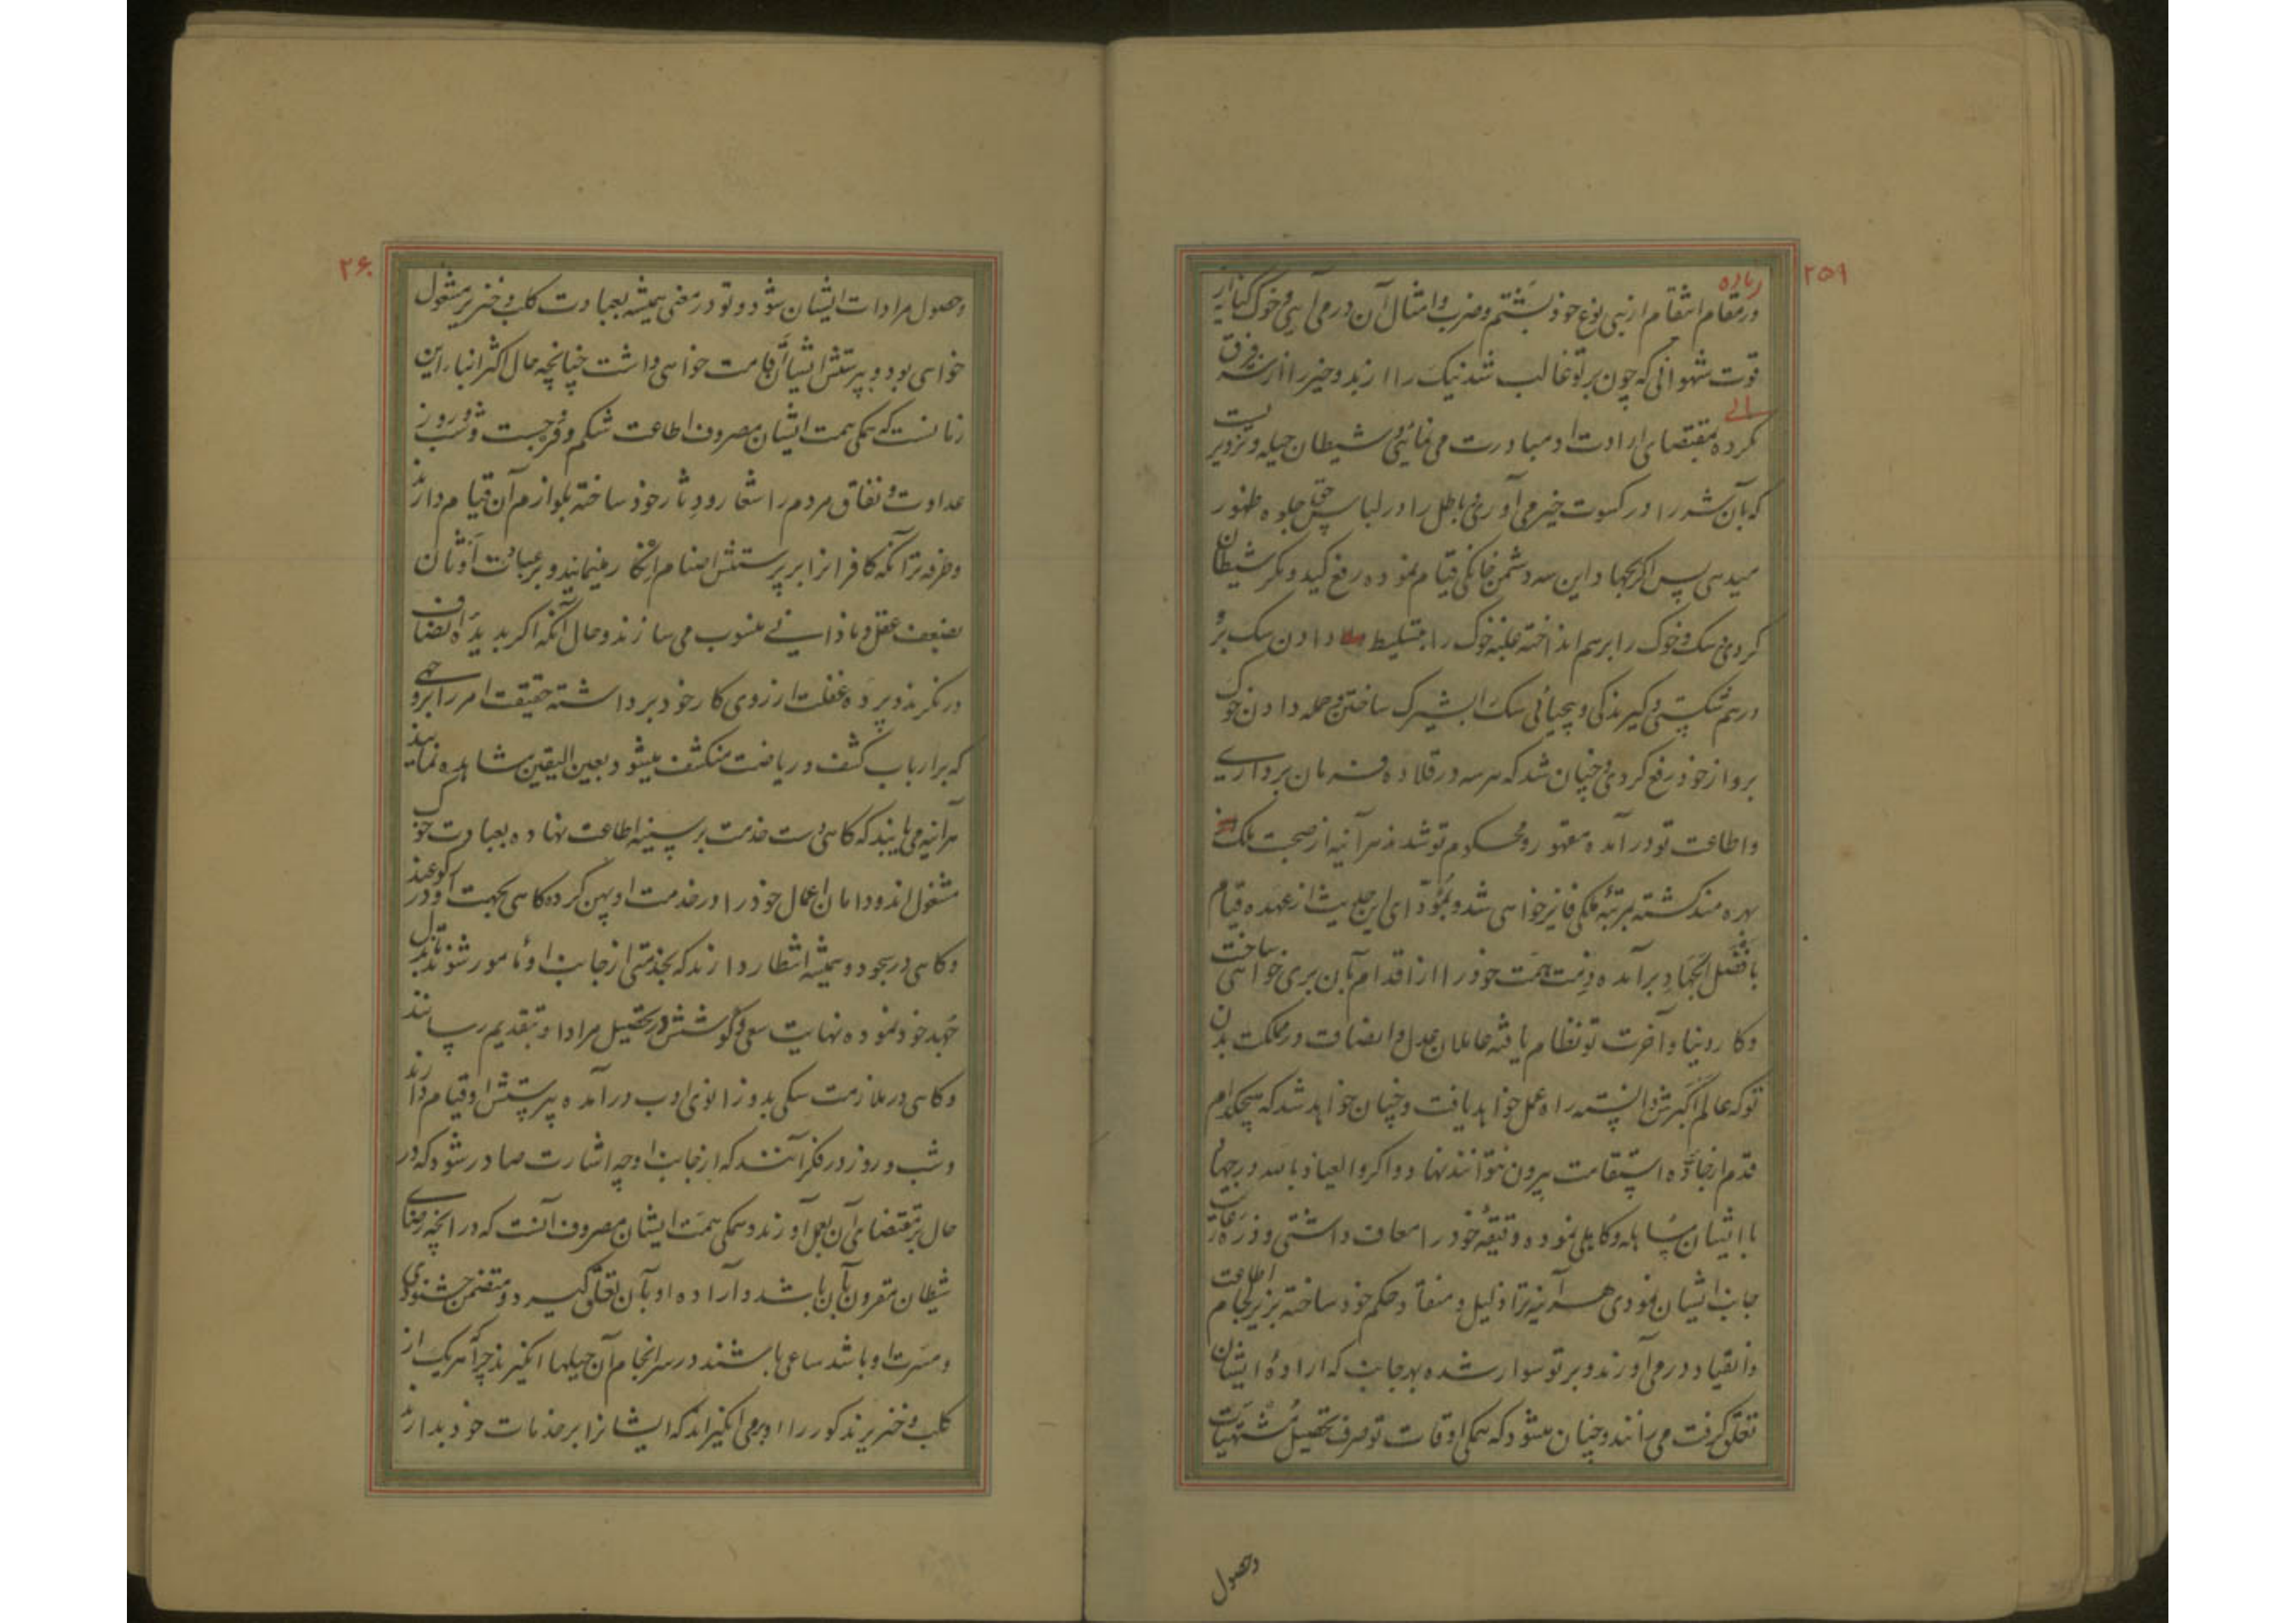 ۲۵۹
زیاده
در مقام انتقام از بنی نوع خود بشتم و ضرب و امثال آن در می آیی و خوک کنایه از
قوت شهوانی که چون بر تو غالب شد نیک را از بد و خیر را از شر فرق
نکرده بمقتضای ارادت او مبادرت می نمائی و شیطان حیله و تزویر یست
که بآن شر را در کسوت خیر می آوری و باطل را در لباس حق جلوه ظهور
میدهی پس اگر بجهاد این سه دشمن خانگی قیام نموده رفع کید و مکر شیطان
کردی و سک و خوک را برهم انداخته غلبه خوک را بتسلیط دادن سک برو
درهم شکستی و گیرندگی و بیحیائی سک را بشیرک ساختن و حمله دادن خوک
برو از خود رفع کردی و چنان شد که هر سه در قلاده فرمان برداری
و اطاعت تو در آمده مقهور و محکوم تو شدند هر آینه از صحبت ملک
بهره مند گشته بمرتبه ملکی فایز خواهی شد و بمؤدای این حدیث از عهده قیام
بافضل الجهاد برآمده ذمت همت خود را از اقدام بآن بری خواهی ساخت
و کار دنیا و آخرت تو نظام یافته عاملان عدل و انصاف در مملکت بدن
تو که عالم اکبرش دانسته راه عمل خواهد یافت و چنان خواهد شد که هیچکدام
قدم از جاده استقامت بیرون نتوانند نهاد و اگر والعیاذ بالله در جهاد
با ایشان مساهله و کاهلی نموده دقیقه خود را معاف داشتی و رعایت
جانب ایشان نمودی هر آینه ترا ذلیل و منقاد حکم خود ساخته بزیر لجام اطاعت
و انقیاد در می آورند و بر تو سوار شده بهر جانب که اراده ایشان بآن
تعلق گرفت می رانند و چنان میشود که همگی اوقات تو صرف تحصیل مشتهیات
وحصول
۲۶۰
وحصول مرادات ایشان شود و تو در معنی همیشه بعبادت کلب و خنزیر مشغول
خواهی بود و بپرستش ایشان قامت خواهی داشت چنانچه حال اکثر ابناء این
زمانست که همگی همت ایشان مصروف اطاعت شکم و فرجست و شب و روز
عداوت و نفاق مردم را شعار و دثار خود ساخته بلوازم آن قیام دارند
و طرفه تر آنکه کافرانرا بر پرستش اصنام انکار مینمایند و بر عبادت اوثان
بضعف عقل و نادانی منسوب می سازند و حال آنکه اگر بدیده انصاف
درنگرند و پرده غفلت از روی کار خود برداشته حقیقت امر را بروجهی
که بر ارباب کشف و ریاضت منکشف میشود بعین الیقین مشاهده نمایند
هر آینه می یابند که گاهی دست خدمت بر سینه اطاعت نهاده بعبادت خوک
مشغول اند و دامان اعمال خود را در خدمت او پهن کرده گاهی بجهت او در رکوعند
و گاهی در سجود و همیشه انتظار دارند که بخدمتی از جانب او مامور شوند تا بذل
جهد خود نموده نهایت سعی و کوشش در تحصیل مراد او بتقدیم رسانند
و گاهی در ملازمت سگی بدو زانوی ادب درآمده بپرستش او قیام دارند
و شب و روز در فکر آنند که از جانب او چه اشارت صادر شود که در
حال بر مقتضای آن بعمل آورند و همگی همت ایشان مصروف آنست که در آنچه رضای
شیطان مقرون بآن باشد و اراده او بآن تعلق گیرد و متضمن خشنودی
و مسرت او باشد ساعی باشند و در سرانجام آن حیلها انگیزند چرا که هر یک از
کلب و خنزیر مذکور را او برمی انگیزاند که ایشانرا بر خدمات خود بدارند